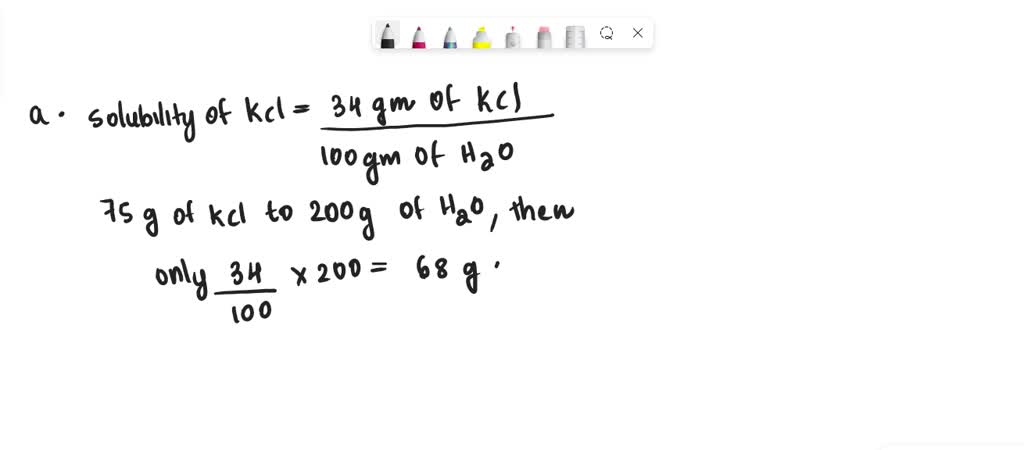 a. solubility of kcl = 34 gm of kcl / 100 gm of H2O
75 g of kcl to 200g of H2O, then
only 34/100 x 200 = 68 g.